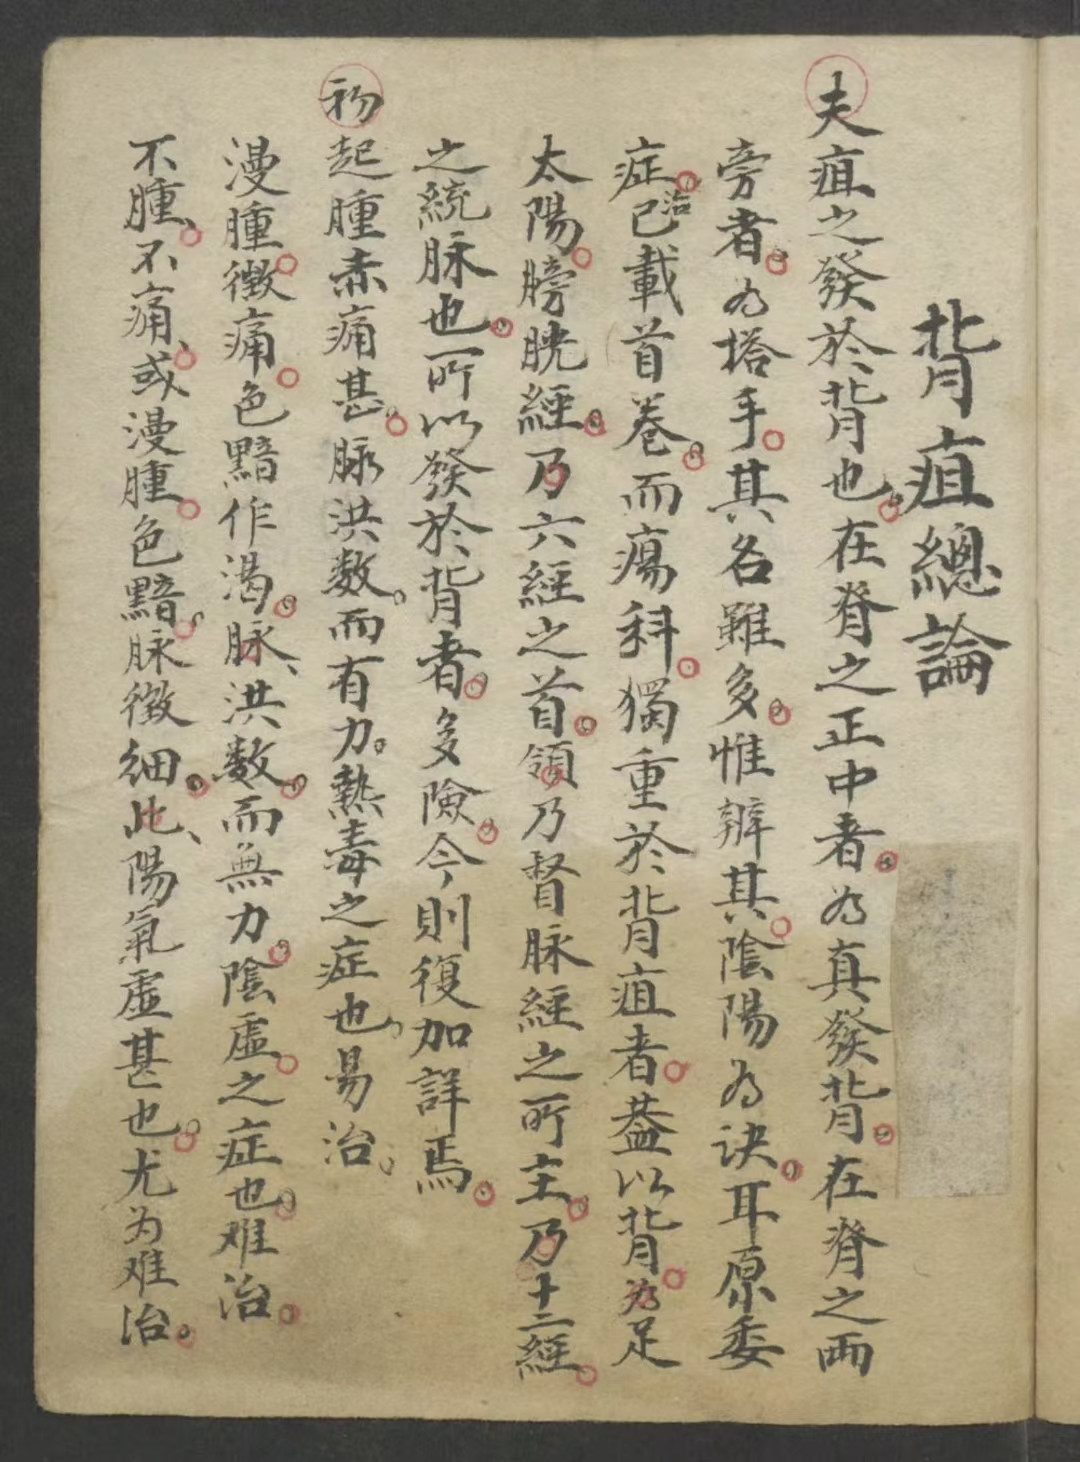 背疽總論
夫疽之發於背也。在脊之正中者。为真發背。在脊之兩
旁者。为塔手。其名雖多。惟辨其陰陽为訣。耳原委
症治。已載首巻。而瘍科。獨重於背疽者。葢以背为足
太陽。膀胱經。乃六經之首。領乃督脉經之所主。乃十二經
之統脉也。所以發於背者。多險。今則復加詳焉。
初起腫赤痛甚。脉洪数。而有力。熱毒之症也。易治。
漫腫。徴痛。色黯作渴。脉、洪数。而無力。陰虛。之症也。难治。
不腫、不痛、或漫腫。色黯。脉徴細。此、陽氣虛甚也。尤为难治。